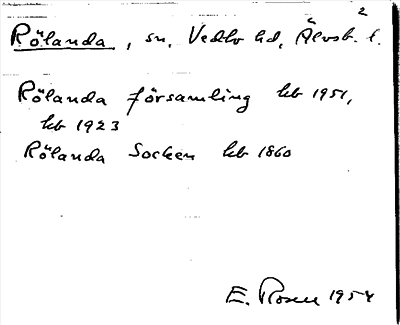 2
Rölanda, sn, Vedbo hd, Älvsb. l.
Rölanda församling kb 1951,
kb 1923
Rölanda Socken kb 1860
E. Rosen 1954